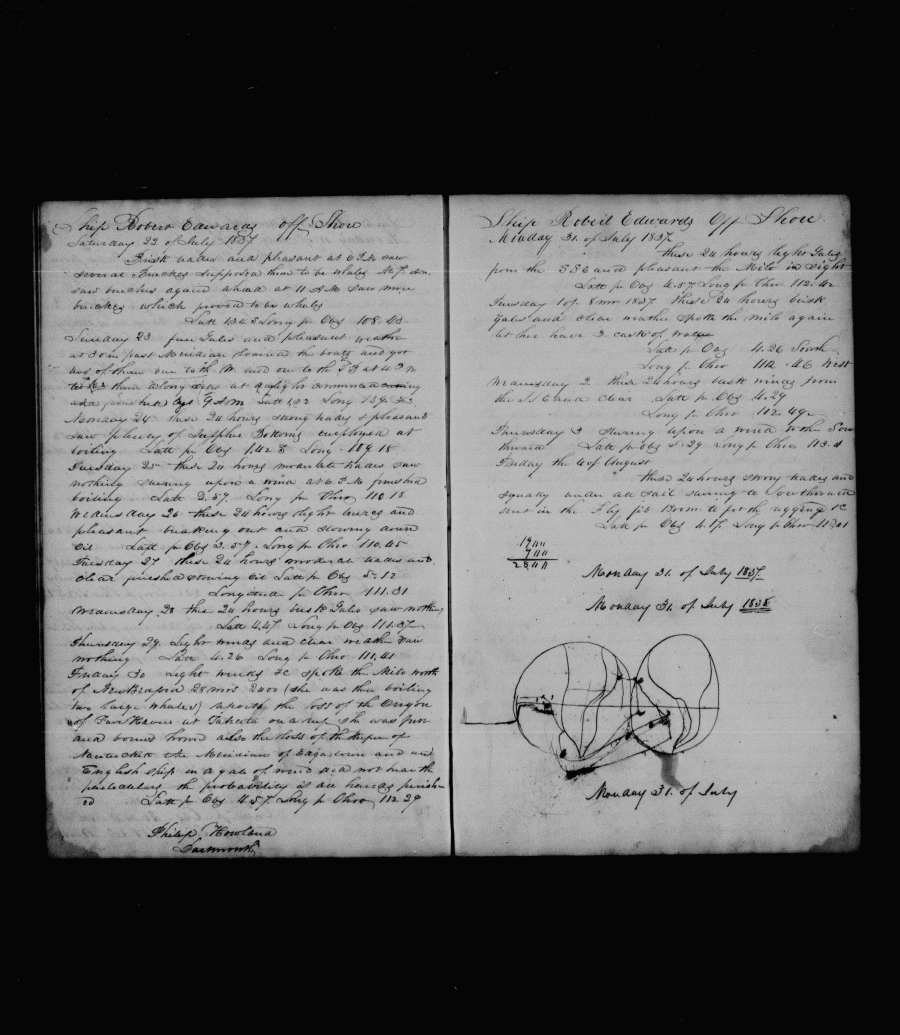 Ship Robert Edwards off Shore
Saturday 22 of July 1837
Brisk trades and pleasant at 6 P.M. saw
several Breaches supposed them to be whales
saw breaches again ahead at 11 A.M. saw more
breaches which proved to be whales
Latt 1.34 S Long pr Obs 108.03
Sunday 23 fine Gales and pleasant weather
at 30 m past Meridian lowered the boats and got
two of them one to the W. and one to the at 4 P.M
them along side at
finished 9 A.M Latt 1.32 Long
Monday 24 these 24 hours strong trades & pleasant
saw plenty of Sulpher Bottoms employed at
boiling Latt pr Obs 1.42 S Long. 109.18
Tuesday 25 these 24 hours moderate trades saw
nothing steering upon a wind at 6 P.M finished
boiling Latt 2.59. Long pr Chro 110.18
Wednesday 26 these 24 hours light breezes and
pleasant breaking out and stowing down
Oil Latt pr Obs 3.57. Long pr Chro 110.45
Tuesday 27 these 24 hours moderate trades and
clear finished stowing Oil Latt pr Obs 5.12
Longitude pr Chro 111.31
Wednesday 28 these 24 hours brisk Gales saw nothing
Latt 4.47 Long pr Obs 111.37
Thursday 29. Light winds and clear weather saw
nothing Latt 4.26 Long pr Chro 111.41
Friday 30 Light winds &c spoke the Milo north
of New Bedford 28 mos 2400 (she was then boiling
two large whales) reports the loss of the Oregon
of Fair Haven at Tahita on a reef she was full
and bound home also the loss of the of
Nantucket the Meridian of Edgartown and an
English ship in a gale of wind did not hear the
particulars the probability is all hands perish-
ed Latt pr Obs 4.57 Long pr Chro 112.29
Philip Howland
Dartmouth
Ship Robert Edwards Off Shore
Monday 31. of July 1837.
these 24 hours light Gales
from the SSE and pleasant the Milo in sight
Latt pr Obs 4.57 Long pr Chro 112.42
Tuesday 1st. 8 mo 1837 these 24 hours brisk
gales and clear weather spoke the milo again
let her have 2 cask of water
Latt pr Obs 4.26 South
Long pr Chro 112.46 West
Wednesday 2. these 24 hours brisk winds from
the S.E and clear Latt pr Obs 4.29
Long pr Chro 112.49
Thursday 3 steering upon a wind to the Sou
thward Latt pr Obs 5.29 Long pr Chro 113.11
Friday the 4 of August
these 24 hours strong trades and
squally under all sail steering to Southward
sent in the Flyg jib Boom to fit the rigging &c
Latt pr Obs Long pr Chro
Monday 31. of July 1837
Monday 31. of July 1838
Monday 31. of July